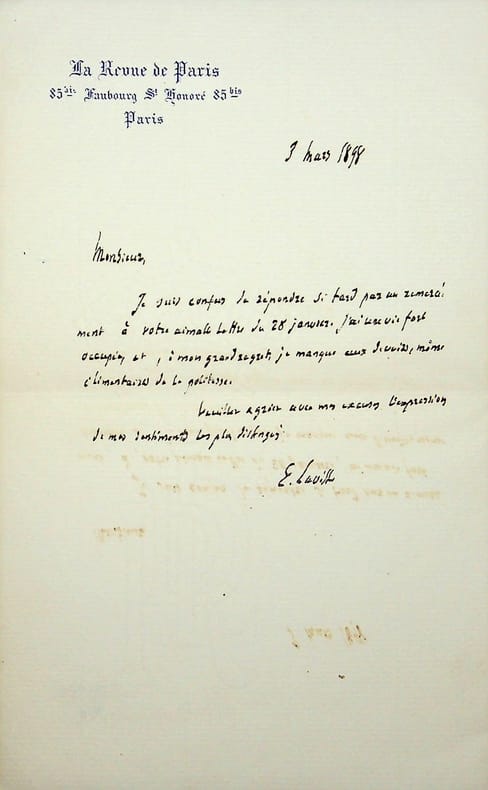 La Revue de Paris
85bis Faubourg St Honoré 85bis
Paris
3 mars 1898
Monsieur,
Je suis confus de répondre si tard par un remercî
ment à votre aimable lettre du 28 janvier. J'ai une vie fort
occupée, et, à mon grand regret, je manque aux devoirs, même
élémentaires de la politesse.
Veuillez agréer avec mes excuses l'expression
de mes sentiments les plus distingués
E. Lavisse